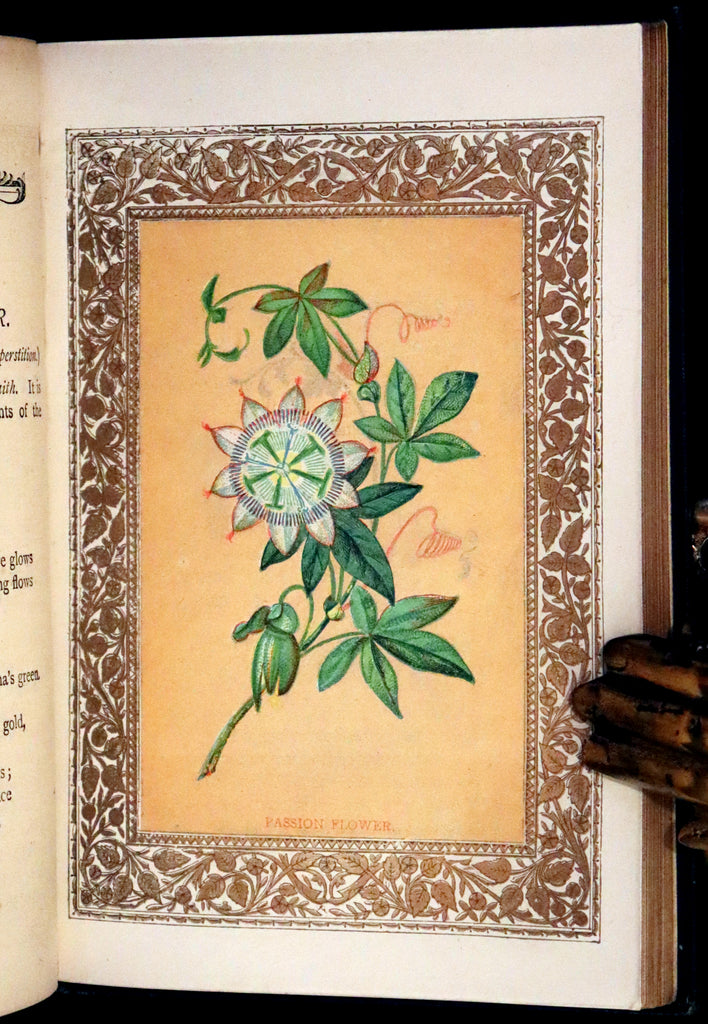 R.
perstition.)
aith. It is
nts of the
e glows
ng flows
a's green
gold,
s;
ce
PASSION FLOWER.